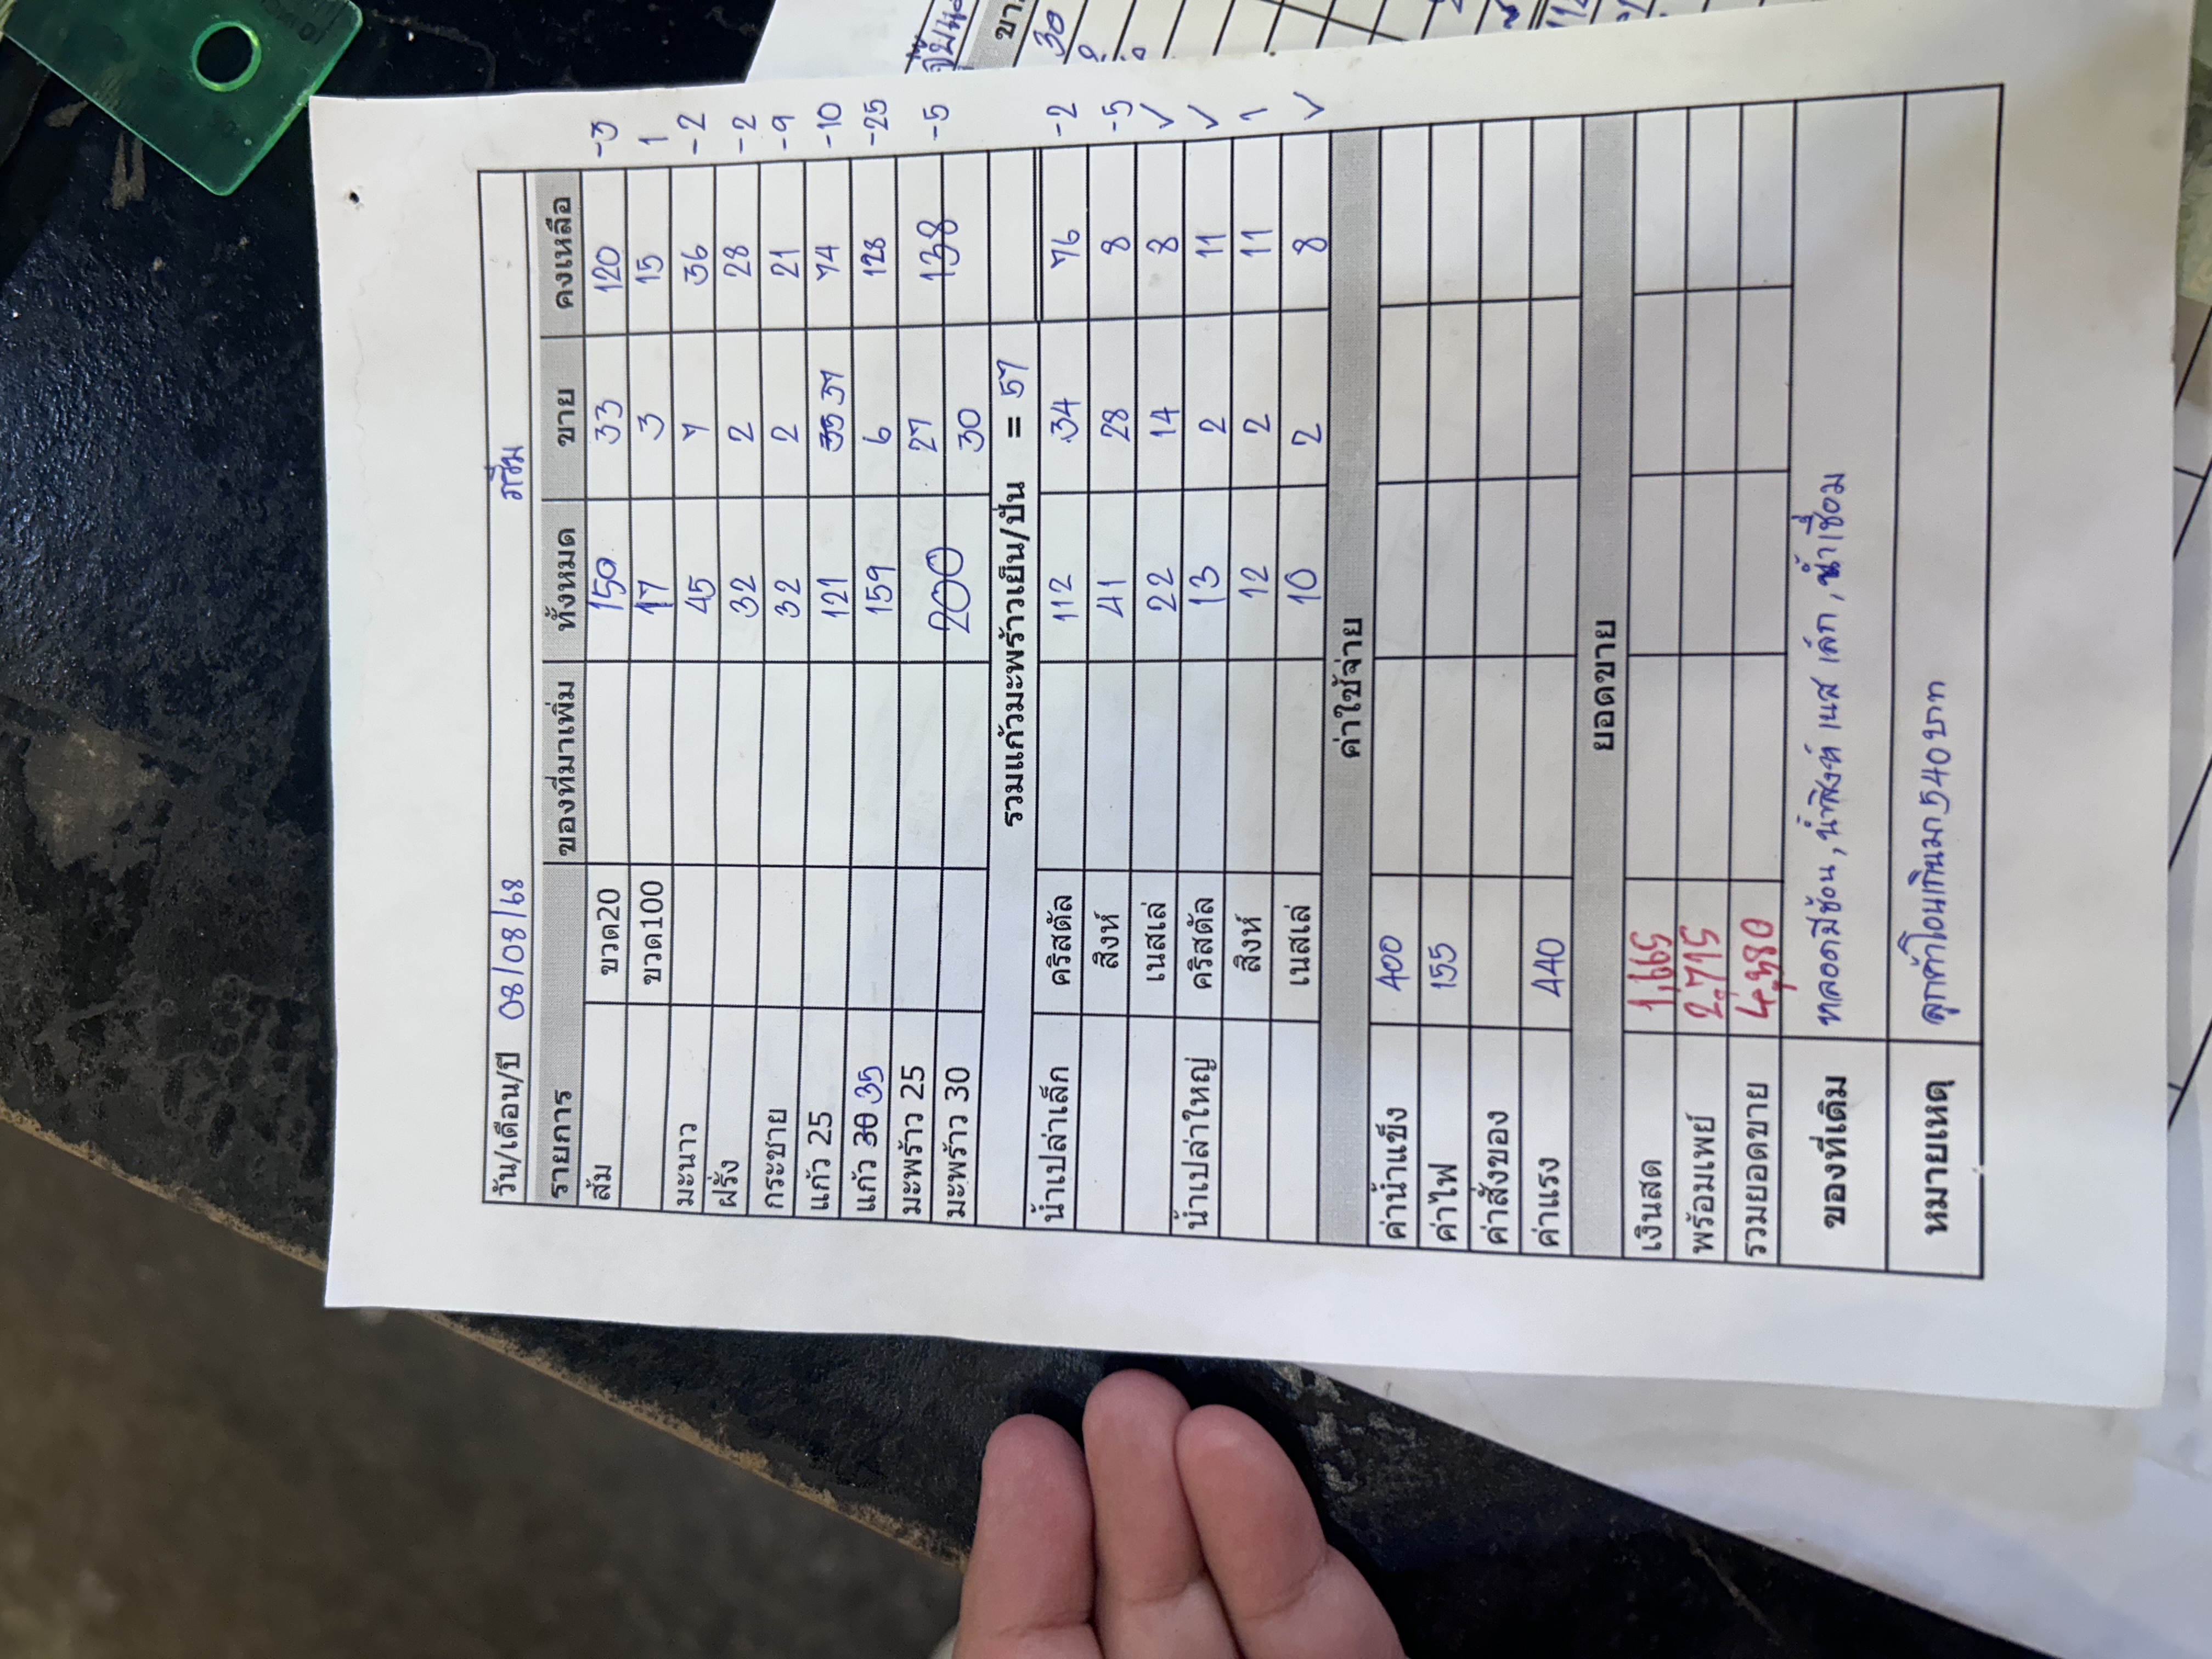 วัน/เดือน/ปี 08/08/68 ภรีม
รายการ ของที่มาเพิ่ม ทั้งหมด ขาย คงเหลือ
ส้ม ขวด20 150 33 120 -3
ขวด100 17 3 15 1
มะนาว 45 7 36 -2
ฝรั่ง 32 2 28 -2
กระชาย 32 2 21 -9
แก้ว 25 121 35 37 74 -10
แก้ว 30 35 159 6 128 -25
มะพร้าว 25 200 27 138 -5
มะพร้าว 30 30
รวมแก้วมะพร้าวเย็น/ปั่น = 57
น้ำเปล่าเล็ก คริสตัล 112 34 76 -2
สิงห์ 41 28 8 -5
เนสเล่ 22 14 8 ✓
น้ำเปล่าใหญ่ คริสตัล 13 2 11 ✓
สิงห์ 12 2 11 1
เนสเล่ 10 2 8 ✓
ค่าใช้จ่าย
ค่าน้ำแข็ง 400
ค่าไฟ 155
ค่าสั่งของ
ค่าแรง 440
ยอดขาย
เงินสด 1,665
พร้อมเพย์ 2,715
รวมยอดขาย 4,380
ของที่เดิม หลอดมีช้อน, น้ำสิงห์ เนส เล็ก, น้ำเชื่อม
หมายเหตุ ลูกค้าโอนเกินมา 540 บาท
ขา
30